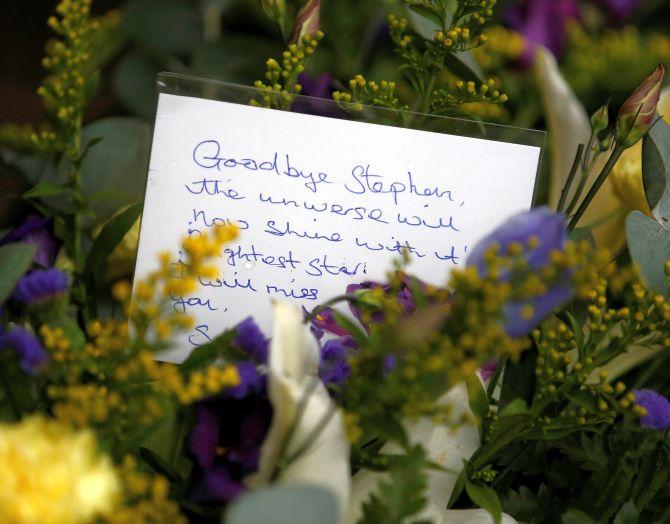 Goodbye Stephen,
the universe will
now shine with it'
brightest star.
I will miss
you,
S